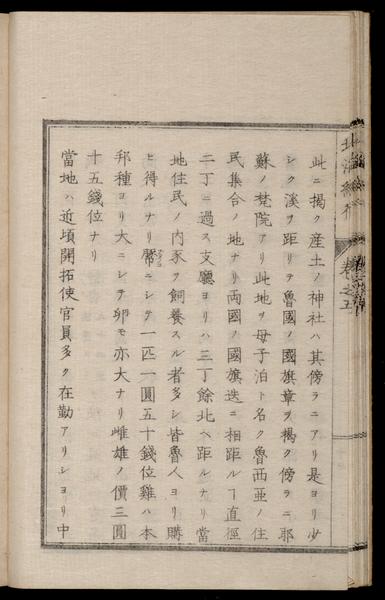 此ニ掲ク産土ノ神社ハ其傍ラニアリ是ヨリ少
シク渓ヲ距リテ魯國ノ國旗章ヲ掲ク傍ラニ耶
蘇ノ梵院アリ此地ヲ母子泊ト名ク魯西亜ノ住
民集合ノ地ナリ両國ノ國旗迭ニ相距ルヿ直徑
二丁ニ過ス支廳ヨリハ三丁餘北ヘ距ルナリ當
地住民ノ内豕ヲ飼養スル者多シ皆魯人ヨリ購
ヒ得ルナリ ニシテ一匹一圓五十錢位雞ハ本
邦種ヨリ大ニシテ卵モ亦大ナリ雌雄ノ價三圓
十五錢位ナリ
當地ハ近頃開拓使官員多ク在勤アリシヨリ中
卷之五